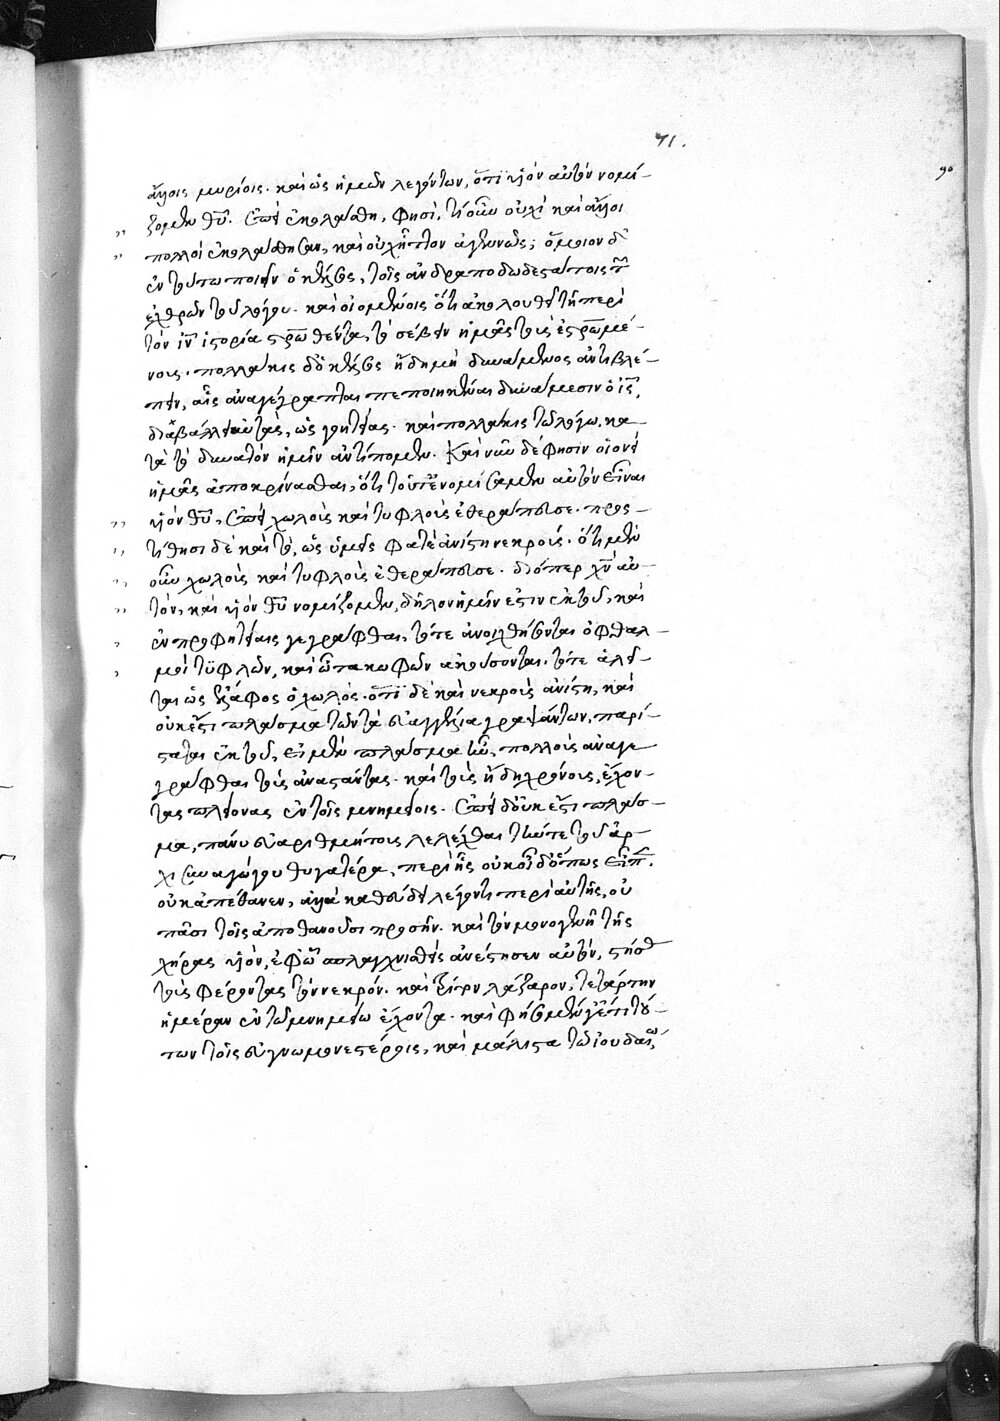 71.
90
ἄλλοις μυρίοις. καὶ ὡς ἡμῶν λεγόντων, ὅτι υἱὸν αὐτὸν νομί-
ζομεν θ̅υ̅. ἐπεὶ ἐκολάσθη, φησὶ, τί οὖν οὐχὶ καὶ ἄλλοι
πολλοὶ ἐκολάσθησαν, καὶ οὐχ ἧττον ἀγεννῶς; ὅμοιον δ'
ἐν τούτω ποιεῖν ὁ κέλσος, τοῖς ἀνδραποδωδεστάτοις τῶν
ἐχθρῶν τοῦ λόγου. καὶ οἰομένοις ὅτι ἀκολουθεῖ τῆ περὶ
τὸν ι̅ν̅ ἱστορία σ̅ρ̅ω̅θέντα, τὸ σέβειν ἡμᾶς τοὺς ἐσ̅ρ̅ω̅μέ-
νοις. πολλάκις δ' ὁ κέλσος ἤδη μὴ δυνάμενος ἀντιβλέ-
πειν, αἷς ἀναγέγραπται πεποιηκέναι δυνάμεσιν ὁ ι̅ς̅,
διαβάλλει αὐτὰς, ὡς γοητείας. καὶ πολλάκις τῶ λόγω, κα-
τὰ τὸ δυνατὸν ἡμῖν ἀντείπομεν. Καὶ νῦν δέ φησιν οἱονεὶ
ἡμᾶς ἀποκρίνασθαι, ὅτι τοῦτ' ἐνομίσαμεν αὐτὸν εἶναι
υἱὸν θ̅υ̅, ἐπεὶ χωλοὺς καὶ τυφλοὺς ἐθεράπευσε. προς-
τίθησι δὲ καὶ τὸ, ὡς ὑμεῖς φατὲ ἀνίστη νεκρούς. ὅτι μὲν
οὖν χωλοὺς καὶ τυφλοὺς ἐθεράπευσε. διόπερ χ̅ν̅ αὐ-
τὸν, καὶ υἱὸν θ̅υ̅ νομίζομεν, δῆλον ἡμῖν ἐστιν ἐκ τοῦ, καὶ
ἐν προφητείαις γεγράφθαι, τότε ἀνοιχθήσονται ὀφθαλ-
μοὶ τυφλῶν, καὶ ὦτα κωφῶν ἀκούσονται. τότε ἁλεῖ-
ται ὡς ἔλαφος ὁ χωλός. ὅτι δὲ καὶ νεκροὺς ἀνίστη, καὶ
οὐκ ἔστι πλάσμα τῶν τὰ εὐαγγέλια γραψάντων, παρί-
σταται ἐκ τοῦ, εἰ μὲν πλάσμα ἦν, πολλοὺς ἀναγε
γράφθαι τοὺς ἀναστάντας. καὶ τοὺς ἤδη χρόνοις, ἔχον-
τας πλείονας ἐν τοῖς μνημείοις. ἐπεὶ δ' οὐκ ἔστι πλάσ-
μα, πάνυ εὐαριθμήτους λελέχθαι τήν τε τοῦ ἀρ-
χισυναγώγου θυγατέρα, περὶ ἧς οὐκ οἶδ' ὅπως εἶπεν.
οὐκ ἀπέθανεν, ἀλλὰ καθεύδει λέγων τι περὶ αὐτῆς, ὃ οὐ
πᾶσι τοῖς ἀποθανοῦσι προσῆν. καὶ τὸν μονογενῆ τῆς
χήρας υἱὸν, ἐφ' ὧ σπλαγχνισθεὶς ἀνέστησεν αὐτὸν, στήσας
τοὺς φέροντας τὸν νεκρόν. καὶ τρίτον λάζαρον, τετάρτην
ἡμέραν ἐν τῶ μνημείω ἔχοντα. καὶ φήσομεν γε ἔτι τού-
των τοῖς εὐγνωμονεστέροις, καὶ μάλιστα τῶ ἰουδαίω,